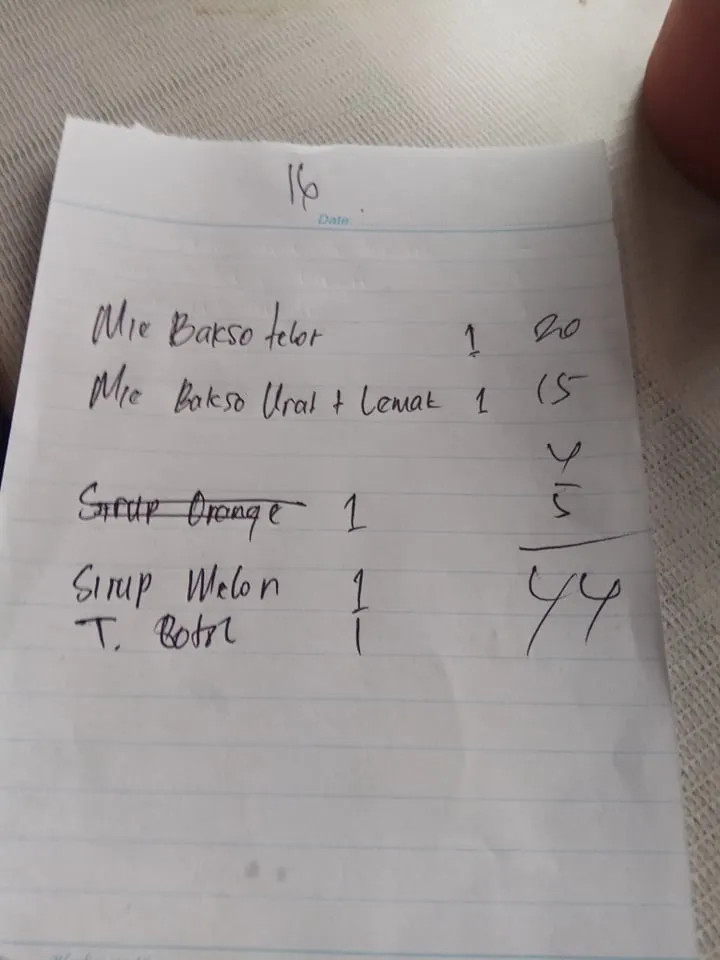 16
Date
Mie Bakso telor 1 20
Mie Bakso Urat + Lemak 1 15
4
Sirup Orange 1 5
Sirup Melon 1 44
T. Botol 1